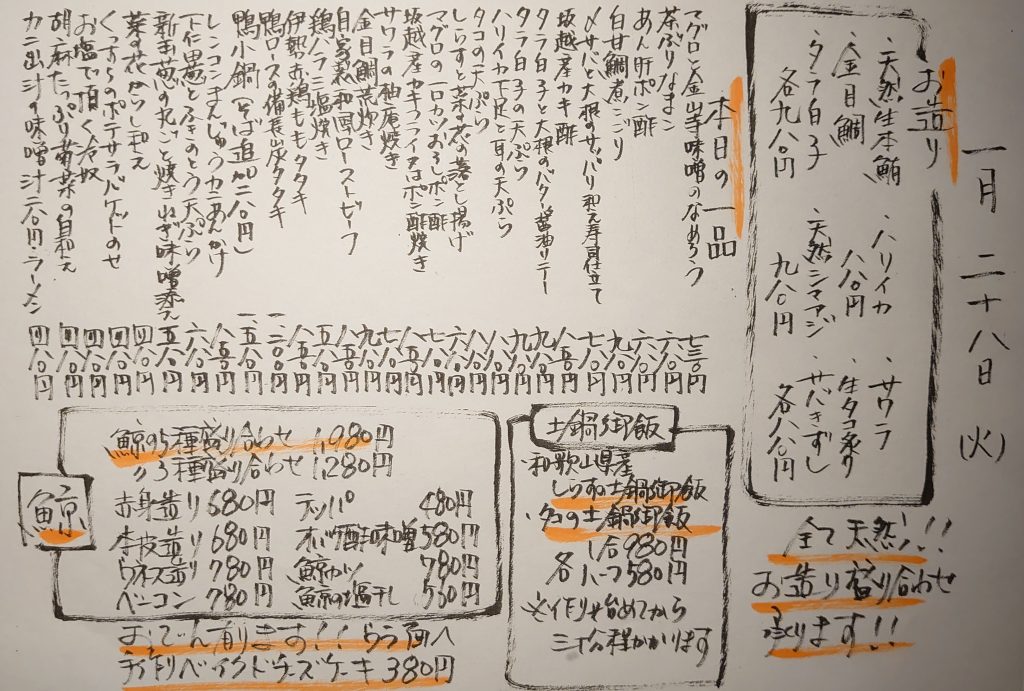 一月二十八日(火)
お造り
・天然生本鮪
・金目鯛
・タラ白子
各九八〇円
・ハリイカ
八八〇円
・天然シマアジ
九八〇円
・サワラ
・生タコ炙り
・サバきずし
各八八〇円
全て天然!!
お造り盛り合わせ
承ります!!
本日の一品
マグロと金山寺味噌のなめろう 七三〇円
茶ぶりなまこ 六八〇円
あん肝ポン酢
白甘鯛煮こごり
〆サバと大根のサッパリ和え寿司仕立て
坂越産カキ酢
タラ白子と大根のバタ醤油ソテー
タラ白子の天ぷら
ハリイカ下足と耳の天ぷら
タコの天ぷら
しらすと菜の花の落とし揚げ
マグロの一口カツおろしポン酢
坂越産カキフライ又はポン酢焼き
サワラの柚庵焼き
金目鯛荒炊き
自家製和風ローストビーフ
鶏ハラミ塩焼き
伊勢赤鶏ももタタキ
鴨ロースの備長炭タタキ
鴨小鍋(そば追加二八〇円)
レンコンまんじゅうカニあんかけ
下仁田葱とふきのとう天ぷら
新玉葱の丸ごと焼きねぎ味噌添え
菜の花からし和え 四八〇円
くっすらのポテサラバゲットのせ 四八〇円
お塩で頂く冷奴 四八〇円
胡麻たっぷり菊菜の白和え 四八〇円
カニ出汁の味噌汁二八〇円ラーメン 四八〇円
鯨
鯨の5種盛り合わせ 1,980円
〃3種盛り合わせ 1,280円
赤身造り 680円
本皮造り 680円
ウネス造り 780円
ベーコン 780円
テッパ 480円
オバケ酢味噌 580円
鯨カツ 780円
鯨の塩干し 530円
おでん有ります!!うら面へ
手作りベイクドチーズケーキ 380円
土鍋御飯
和歌山県産
しらすの土鍋御飯
・タコの土鍋御飯
1合980円
各ハーフ580円
※作り始めてから
三十分程かかります